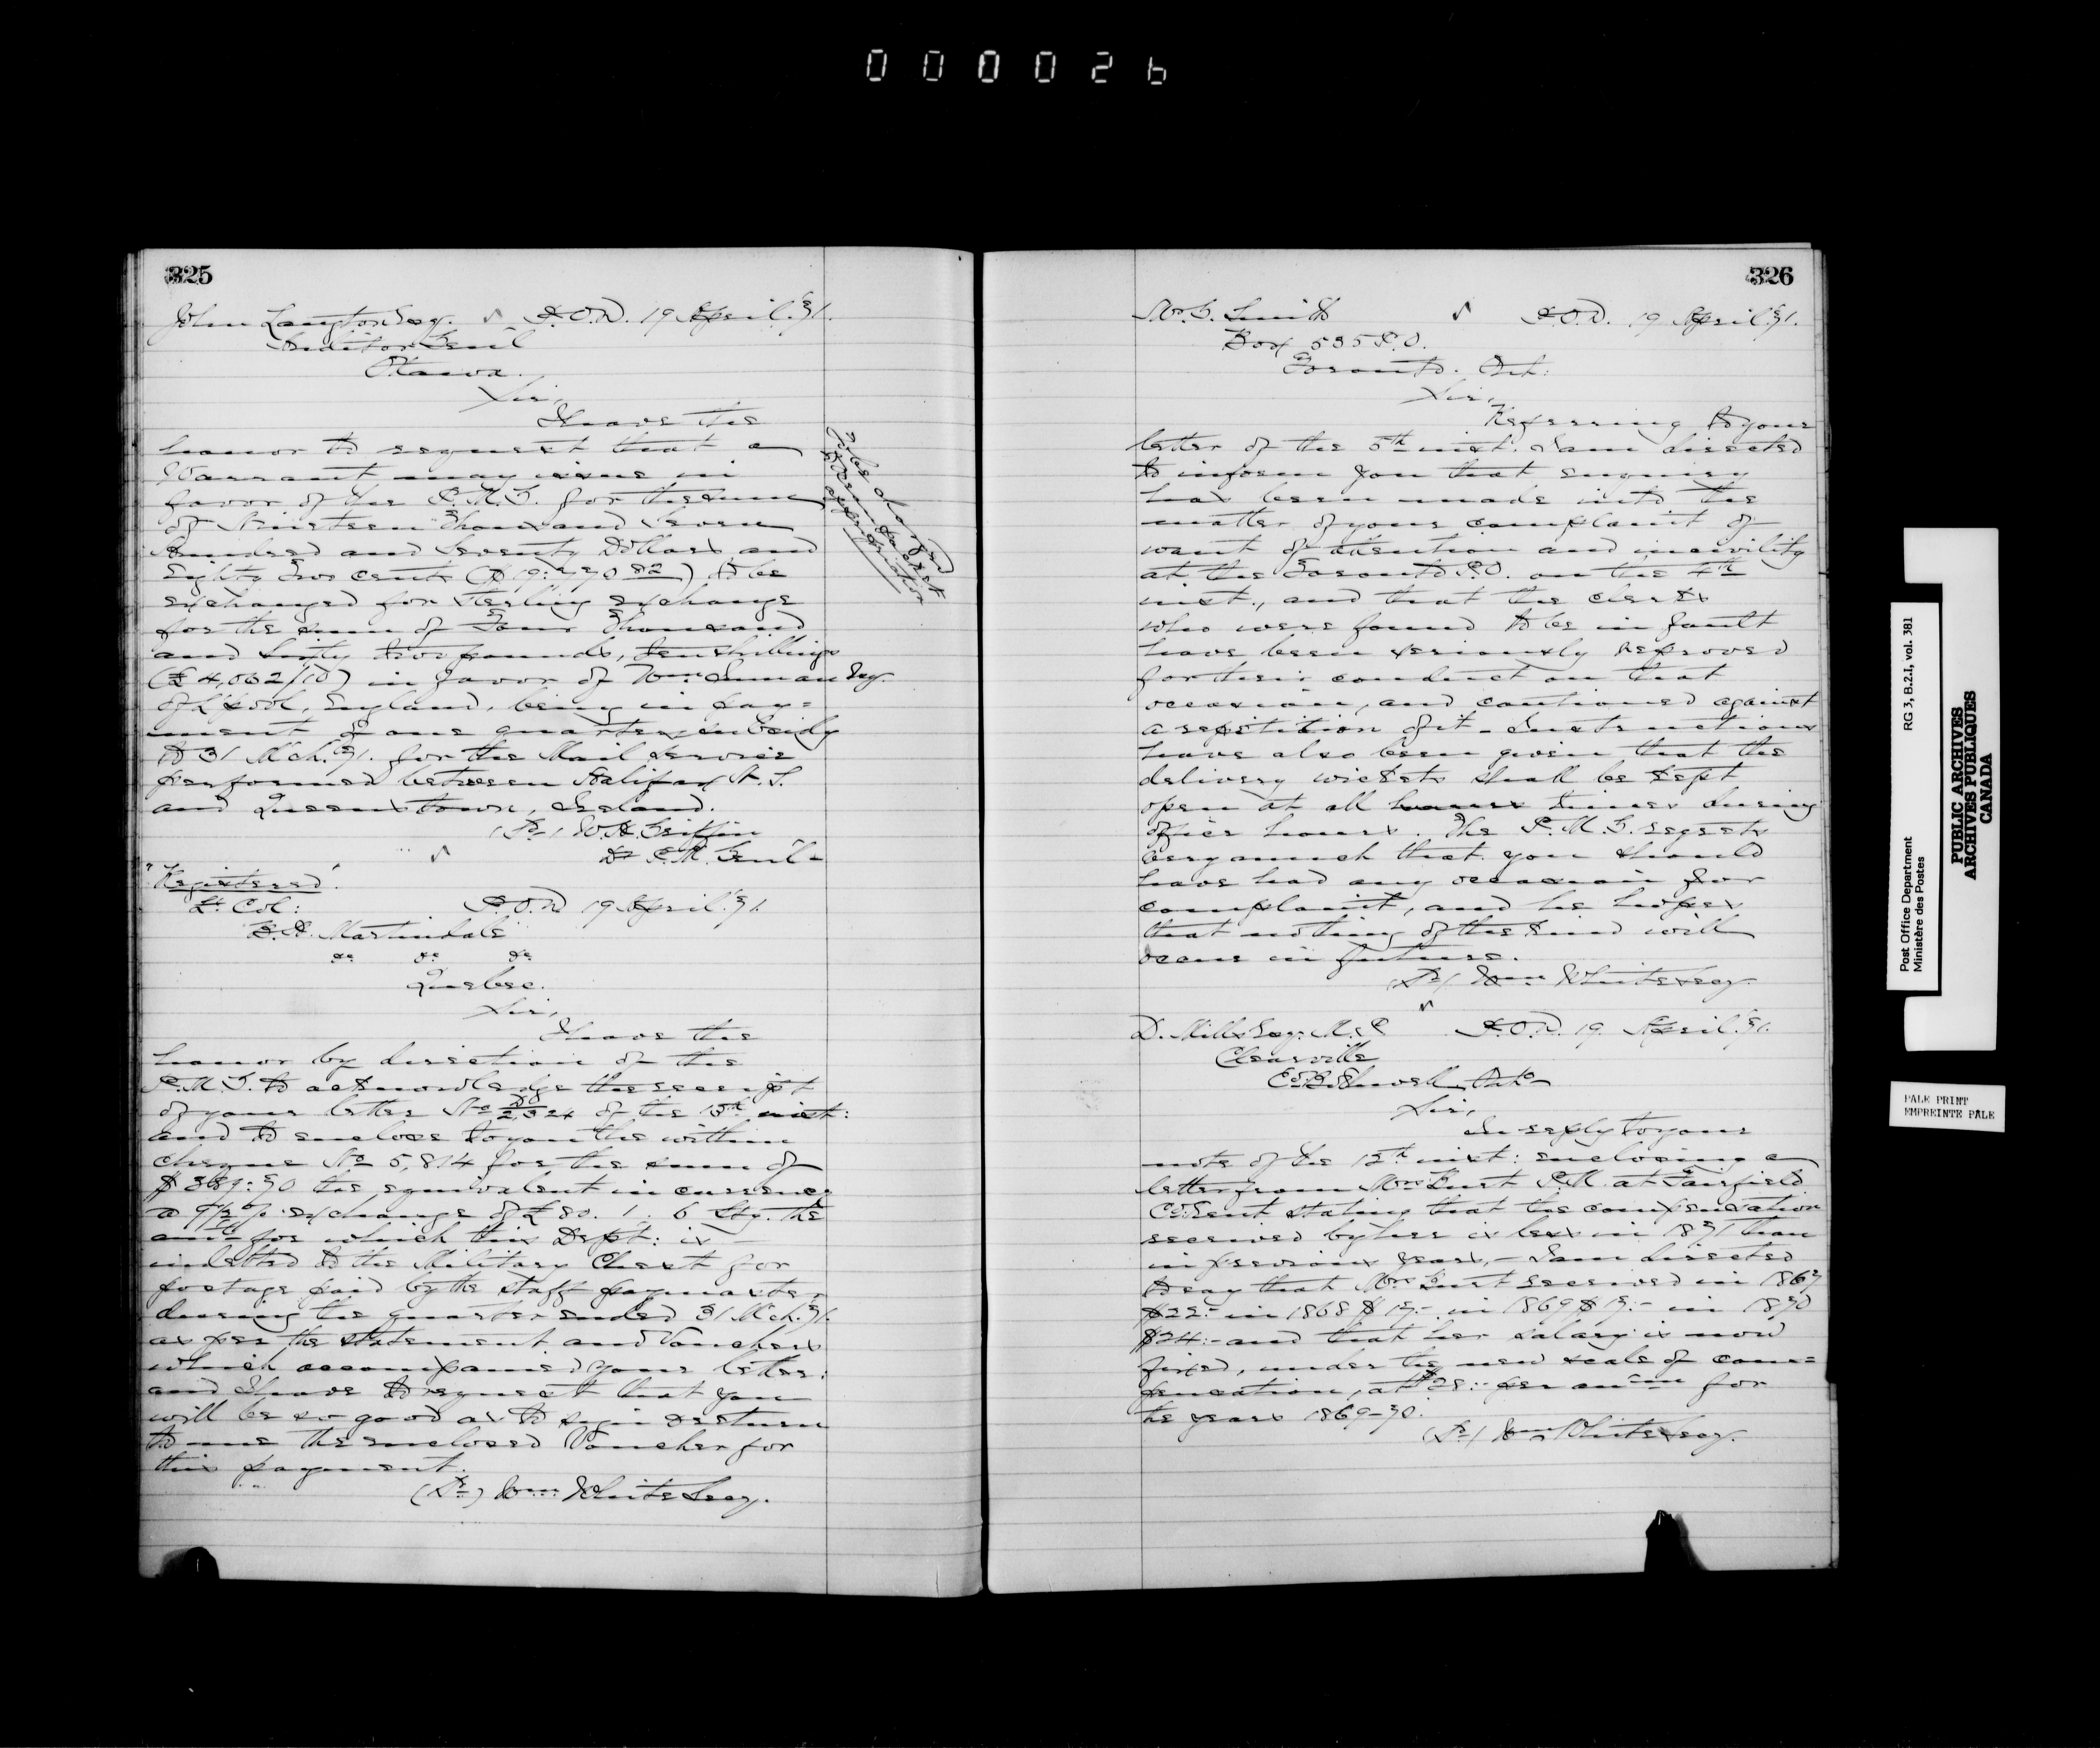 000026
325
John Langton Esq. P.O.D. 19 April '71.
Auditor Genl
Ottawa.
Sir,
I have the
honor to request that a
Warrant may issue in
favor of the P.M.G. for the sum
of Nineteen Thousand Seven
Hundred and Seventy Dollars and
Eighty Two cents ($19:770 82) to be
exchanged for Sterling exchange
for the sum of Four Thousand
and Sixty two pounds, Ten shillings
(£4,062/10) in favor of Wm Inman Esq.
of L'pool, England, being in pay=
ment of one quarter subsidy
to 31 Mch. '71. for the Mail Service
performed between Halifax N.S.
and Queenstown, Ireland.
(Sd) W.H. Griffin
D. P.M. Genl-
To be charged
appropriation
"Registered".
Lt. Col: P.O.D 19 April '71.
Martindale
&c &c &c
Quebec.
Sir,
I have the
honor by direction of the
P.M.G. to acknowledge the receipt
of your letter No of the 15th inst:
and to enclose to you the within
cheque No 5,814 for the sum of
$389:70 the equivalent in currency
a 9½ % exchange of £80. 1. 6 Stg. the
amt for which this Dept: is -
indebted to the Military Chest for
postage paid by the staff paymaster,
during the quarter ended 31 Mch. '71.
as per the statement and Vouchers
which accompanied your letter:
and I have to request that you
will be so good as to sign & return
to me the enclosed Voucher for
this payment.
(Sd) Wm White Secy.
326
Mr. G. Smith P.O.D. 19 April '71.
Box 535 P.O.
Toronto. Ont:
Sir,
Referring to your
letter of the 5th inst. I am directed
to inform you that enquiry
has been made into the
matter of your complaint of
want of attention and incivility
at the Toronto P.O. on the 4th
inst., and that the clerks
who were found to be in fault
have been seriously reproved
for their conduct on that
occasion, and cautioned against
a repetition of it - Instructions
have also been given that the
delivery wickets shall be kept
open at all hours times during
office hours. The P.M.G. regrets
very much that you should
have had any occasion for
complaint, and he hopes
that nothing of the kind will
occur in future.
(Sd) Wm White Secy.
D. Mills Esq: M.P P.O.D. 19. April '71.
Clearville
Co. Bothwell, Onto-
Sir,
In reply to your
note of the 15th inst: enclosing a
letter from Mrs Burt P.M. at Fairfield
Co: Kent stating that the compensation
received by her is less in 1871 than
in previous years, - I am directed
to say that Mrs Burt received in 1867
$22:- in 1868 $17:- in 1869 $17:- in 1870
$24:- and that her salary is now
fixed, under the new scale of com=
pensation, at $28:- per annum for
the years 1869-70.
(Sd) Wm White Secy.
Post Office Department
Ministère des Postes
RG 3, B.2.I, vol. 381
PUBLIC ARCHIVES
ARCHIVES PUBLIQUES
CANADA
PALE PRINT
EMPREINTE PÂLE